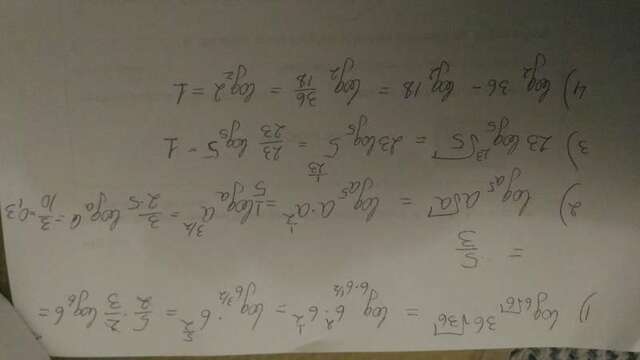 1) log_{6√6} 36√36 = log_{6·6^{1/2}} 6^2·6^{1/2} = log_{6^{3/2}} 6^{5/2} = 5/2 · 2/3 log_6 6 =
= 5/3
2) log_{a^5} a√a = log_{a^5} a·a^{1/2} = 1/5 log_a a^{3/2} = 3/(2·5) log_a a = 3/10 = 0,3
3) 23 log_5 ^{23}√5 = 23 log_5 5^{1/23} = 23/23 log_5 5 = 1
4) log_2 36 - log_2 18 = log_2 36/18 = log_2 2 = 1